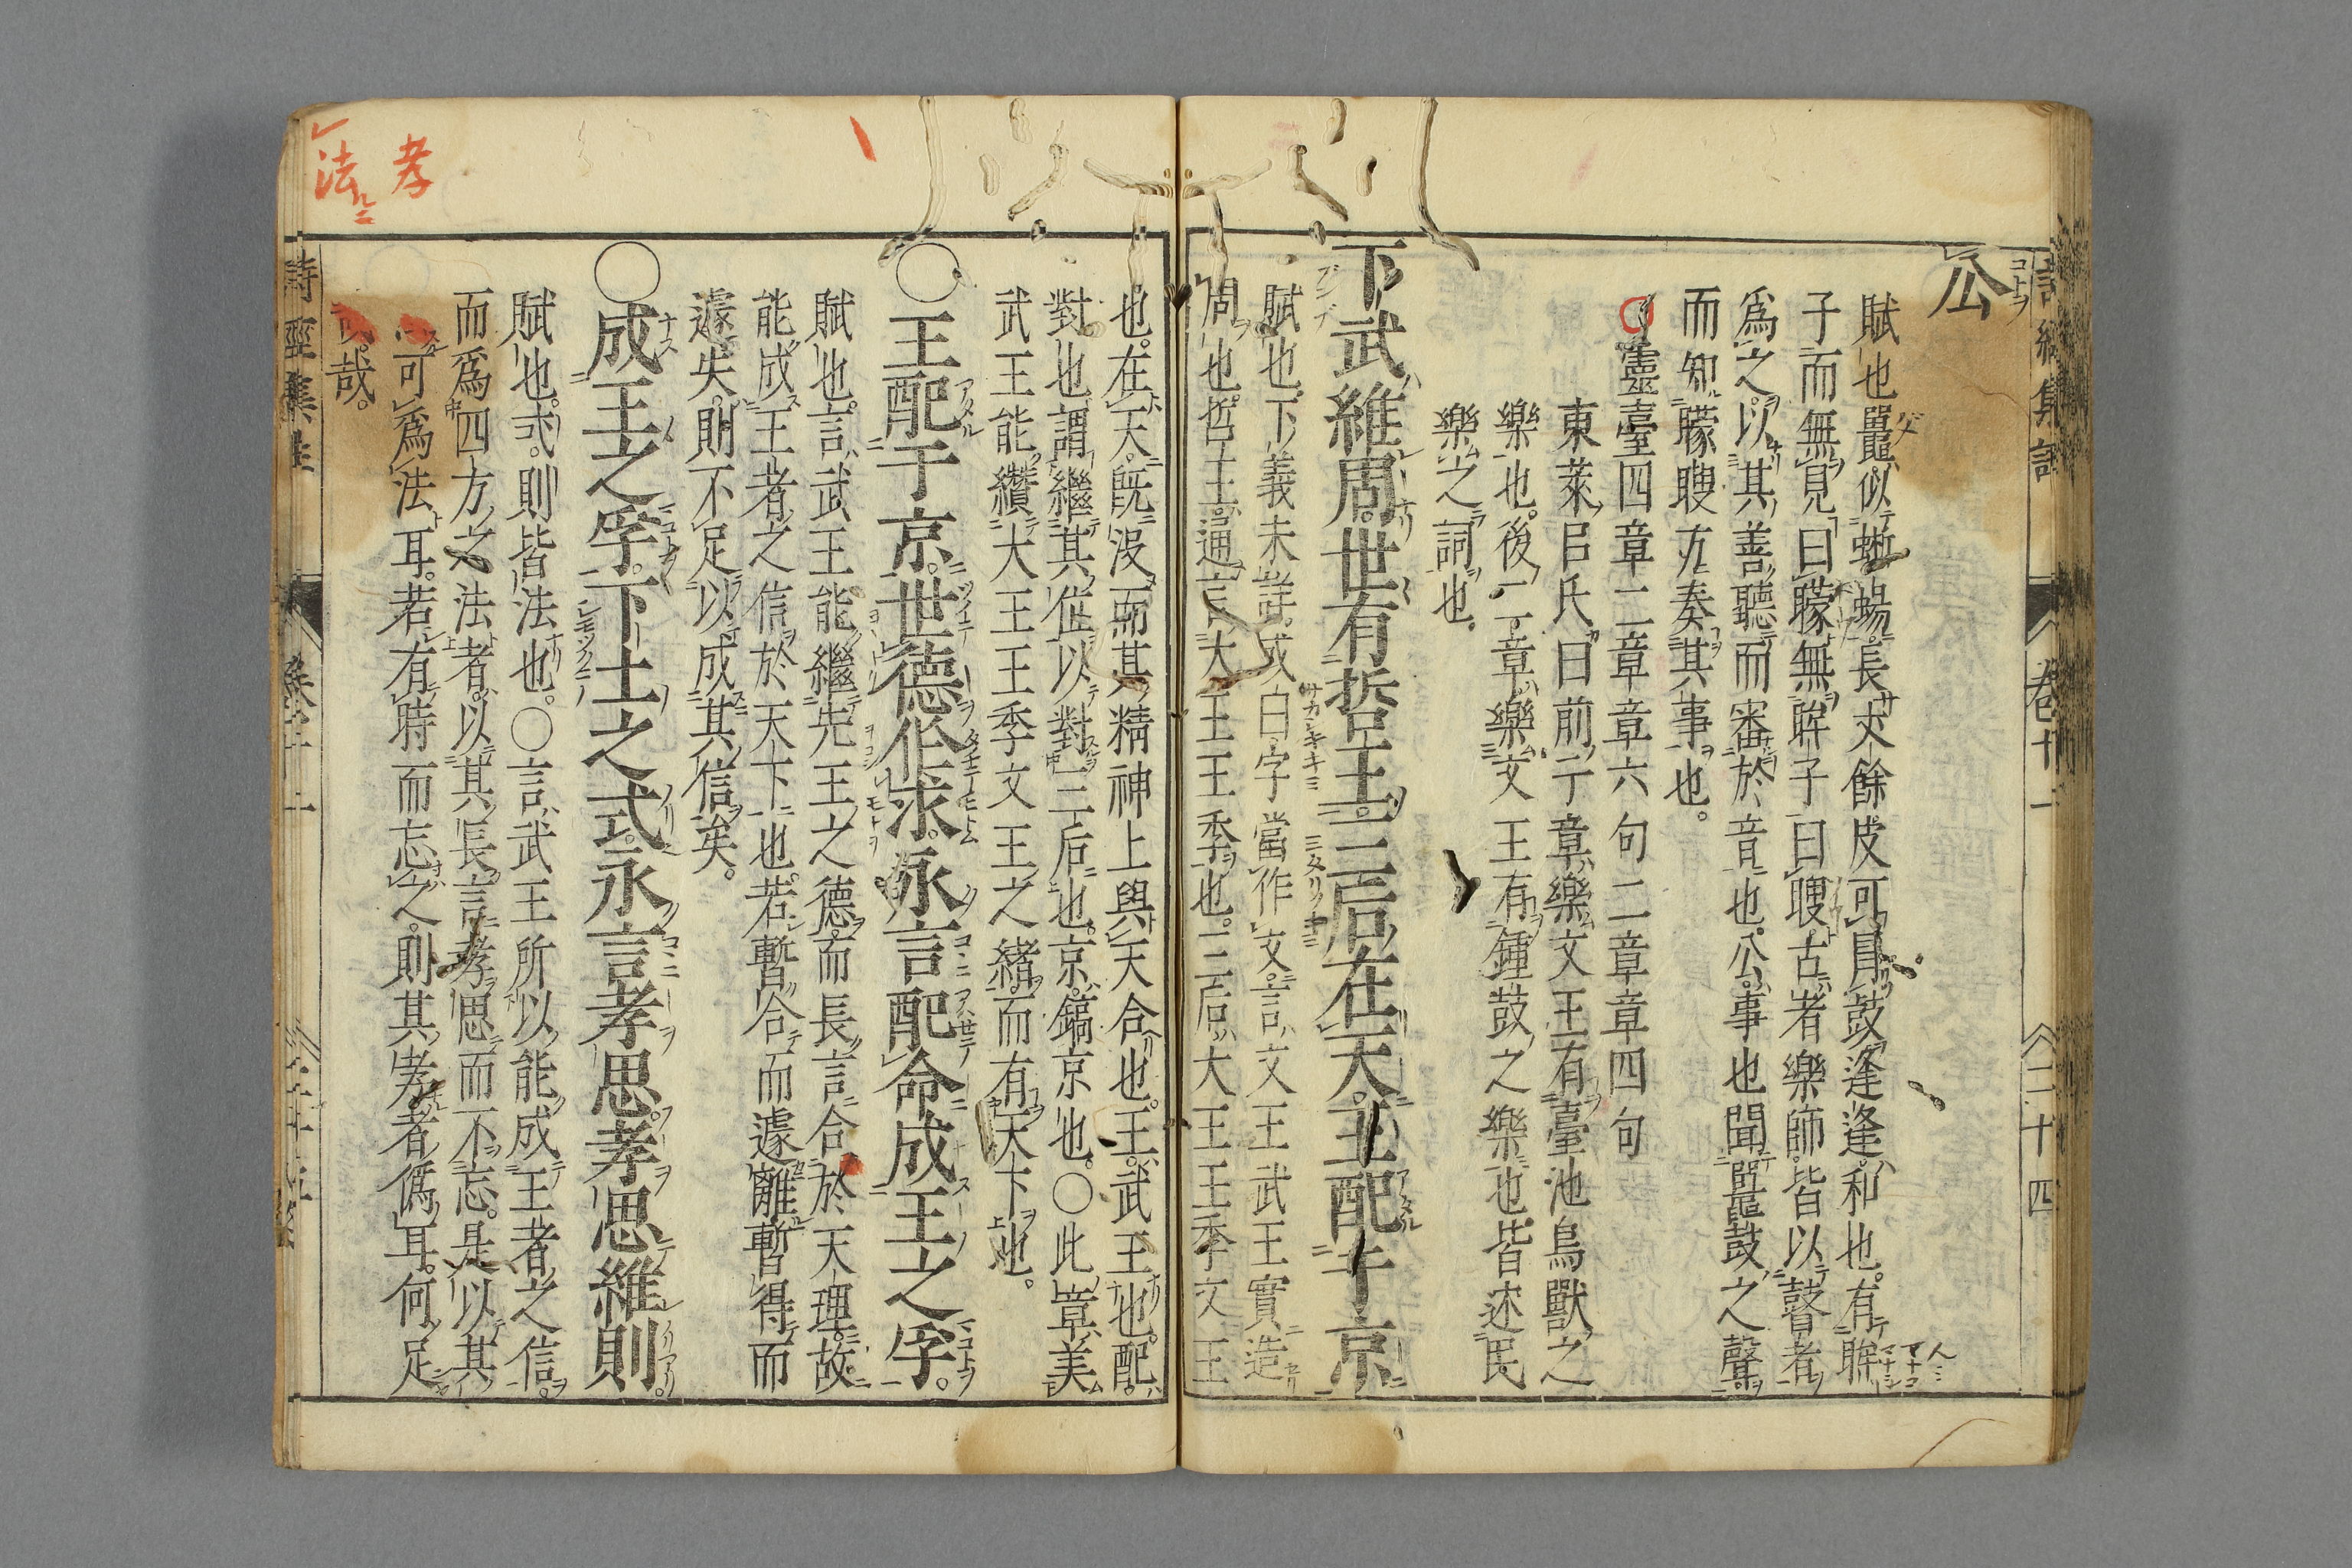 公
賦也鼉似蜥蜴長丈餘皮可冐鼓逢逢和也有眸
子而無見曰矇無眸子曰瞍古者樂師皆以瞽者
爲之以其善聽而審於音也公事也聞鼉鼓之聲
而知矇瞍方奏其事也。
靈臺四章二章章六句二章章四句
東萊呂氏曰前二章樂文王有臺池鳥獸之
樂也後二章樂文王有鍾鼓之樂也皆述民
樂之詞也。
下武維周。世有哲王。三后在天。王配于京
賦也下義未詳或曰字當作文言文王武王實造
周也哲王通言大王王季也三后大王王季文王
也在天既沒而其精神上與天合也王武王也配
對也謂繼其位以對三后也京鎬京也○此章美
武王能纘大王王季文王之緒而有天下也。
○王配于京。世德作求。永言配命成王之孚。
賦也言武王能繼先王之德而長言合於天理故
能成王者之信於天下也若暫合而遽離暫得而
遽失則不足以成其信矣。
○成王之孚。下土之式。永言孝思。孝思維則。
賦也式則皆法也。○言武王所以能成王者之信
而爲四方之法者以其長言孝思而不忘是以其
孝可爲法耳若有時而忘之則其孝者僞耳何足
法哉。
孝
法
詩經集註
卷十一
二十四